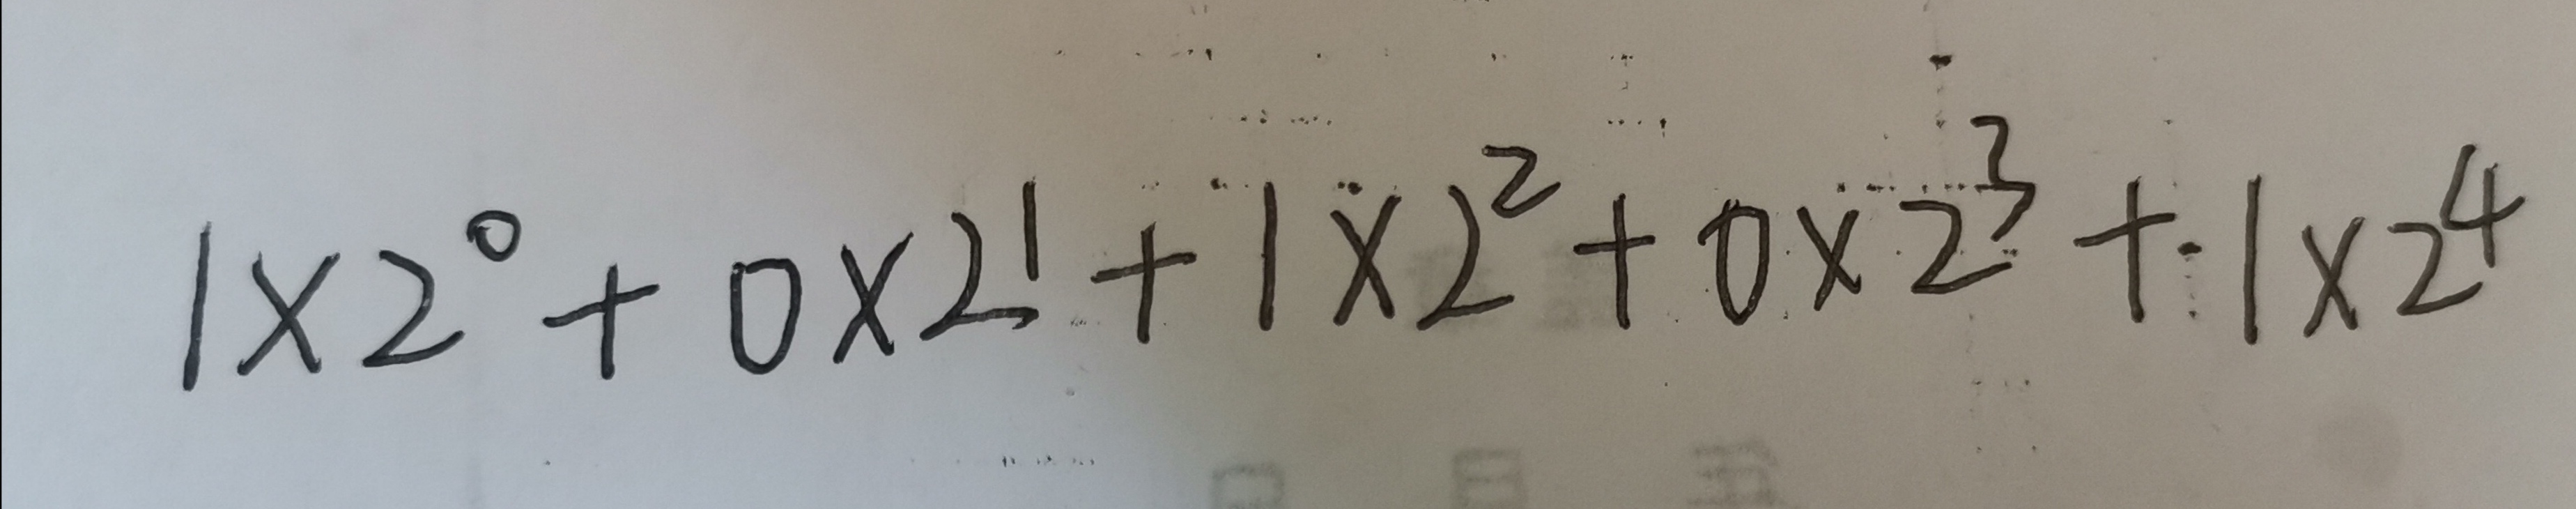 1×2⁰+0×2¹+1×2²+0×2³+1×2⁴